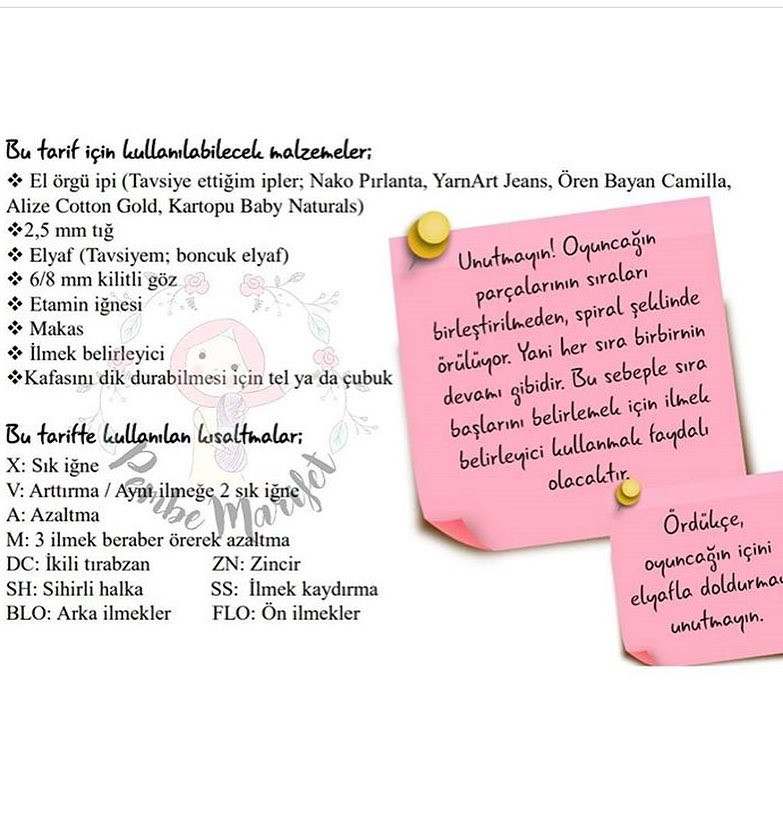 Bu tarif için kullanılabilecek malzemeler;
❖ El örgü ipi (Tavsiye ettiğim ipler; Nako Pırlanta, YarnArt Jeans, Ören Bayan Camilla,
Alize Cotton Gold, Kartopu Baby Naturals)
❖2,5 mm tığ
❖ Elyaf (Tavsiyem; boncuk elyaf)
❖ 6/8 mm kilitli göz
❖ Etamin iğnesi
❖ Makas
❖ İlmek belirleyici
❖Kafasını dik durabilmesi için tel ya da çubuk
Bu tarifte kullanılan kısaltmalar;
X: Sık iğne
V: Arttırma / Aynı ilmeğe 2 sık iğne
A: Azaltma
M: 3 ilmek beraber örerek azaltma
DC: İkili tırabzan ZN: Zincir
SH: Sihirli halka SS: İlmek kaydırma
BLO: Arka ilmekler FLO: Ön ilmekler
Pembe Marifet
Unutmayın! Oyuncağın
parçalarının sıraları
birleştirilmeden, spiral şeklinde
örülüyor. Yani her sıra birbirnin
devamı gibidir. Bu sebeple sıra
başlarını belirlemek için ilmek
belirleyici kullanmak faydalı
olacaktır.
Ördükçe,
oyuncağın içini
elyafla doldurma
unutmayın.